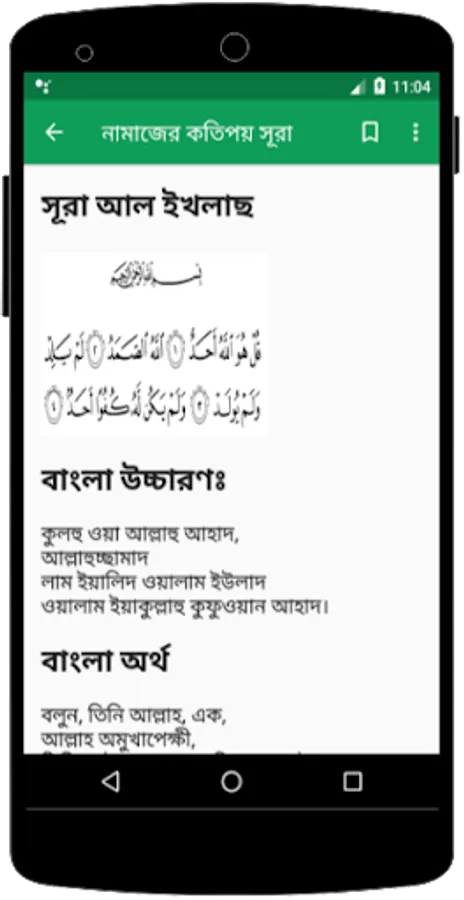 11:04
নামাজের কতিপয় সূরা
সূরা আল ইখলাছ
بسم الله الرحمن الرحيم
قُلْ هُوَ اللَّهُ أَحَدٌ ١ اللَّهُ الصَّمَدُ ٢ لَمْ يَلِدْ
وَلَمْ يُولَدْ ٣ وَلَمْ يَكُنْ لَهُ كُفُوًا أَحَدٌ ٤
বাংলা উচ্চারণঃ
কুলহু ওয়া আল্লাহু আহাদ,
আল্লাহুচ্ছামাদ
লাম ইয়ালিদ ওয়ালাম ইউলাদ
ওয়ালাম ইয়াকুল্লাহু কুফুওয়ান আহাদ।
বাংলা অর্থ
বলুন, তিনি আল্লাহ, এক,
আল্লাহ অমুখাপেক্ষী,